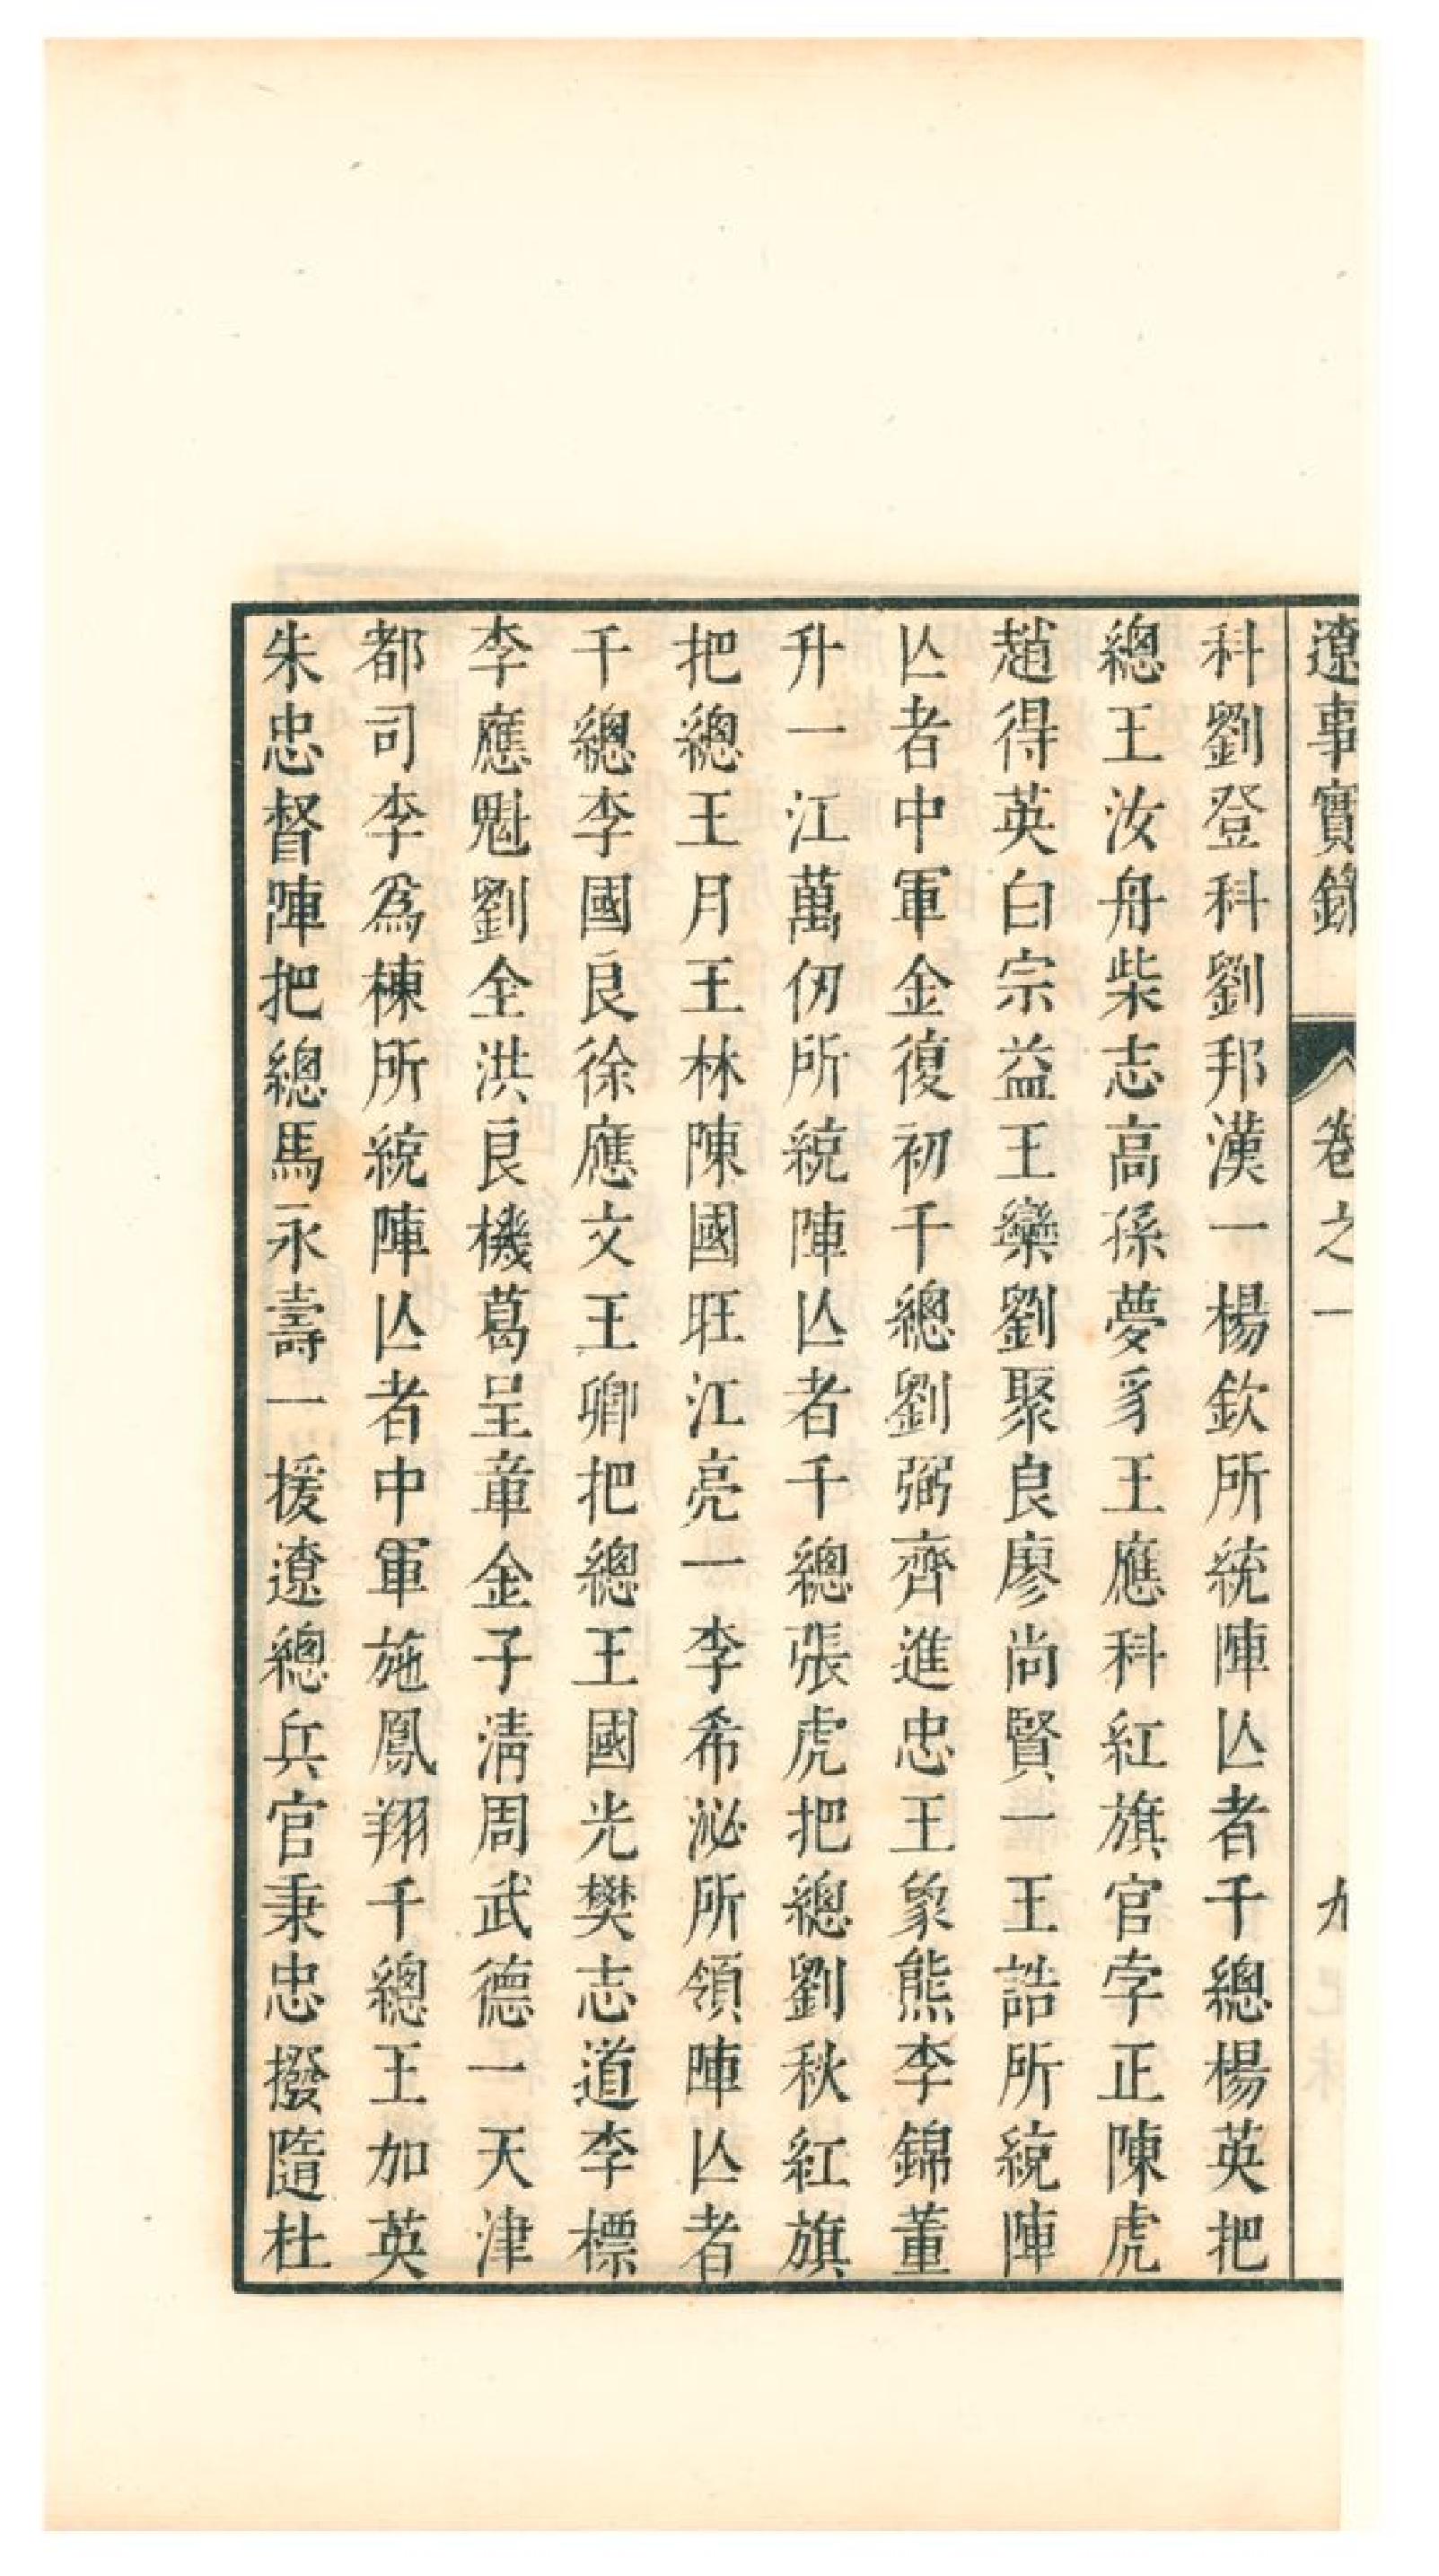 遼事實錄 卷之一 九
科劉登科劉邦漢一楊欽所統陣亾者千總楊英把
總王汝舟柴志高孫夢豸王應科紅旗官孛正陳虎
趙得英白宗益王欒劉聚良廖尚賢一王誥所統陣
亾者中軍金復初千總劉弼齊進忠王象熊李錦董
升一江萬仞所統陣亾者千總張虎把總劉秋紅旗
把總王月王林陳國旺江亮一李希泌所領陣亾者
千總李國良徐應文王卿把總王國光樊志道李標
李應魁劉全洪良機葛呈章金子清周武德一天津
都司李爲棟所統陣亾者中軍施鳳翔千總王加英
朱忠督陣把總馬永壽一援遼總兵官秉忠撥隨杜